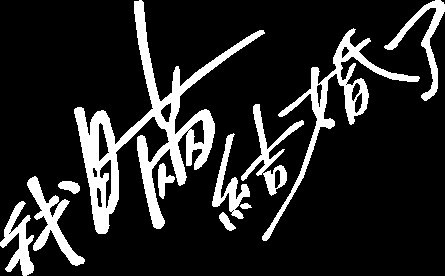 我瞒結婚了